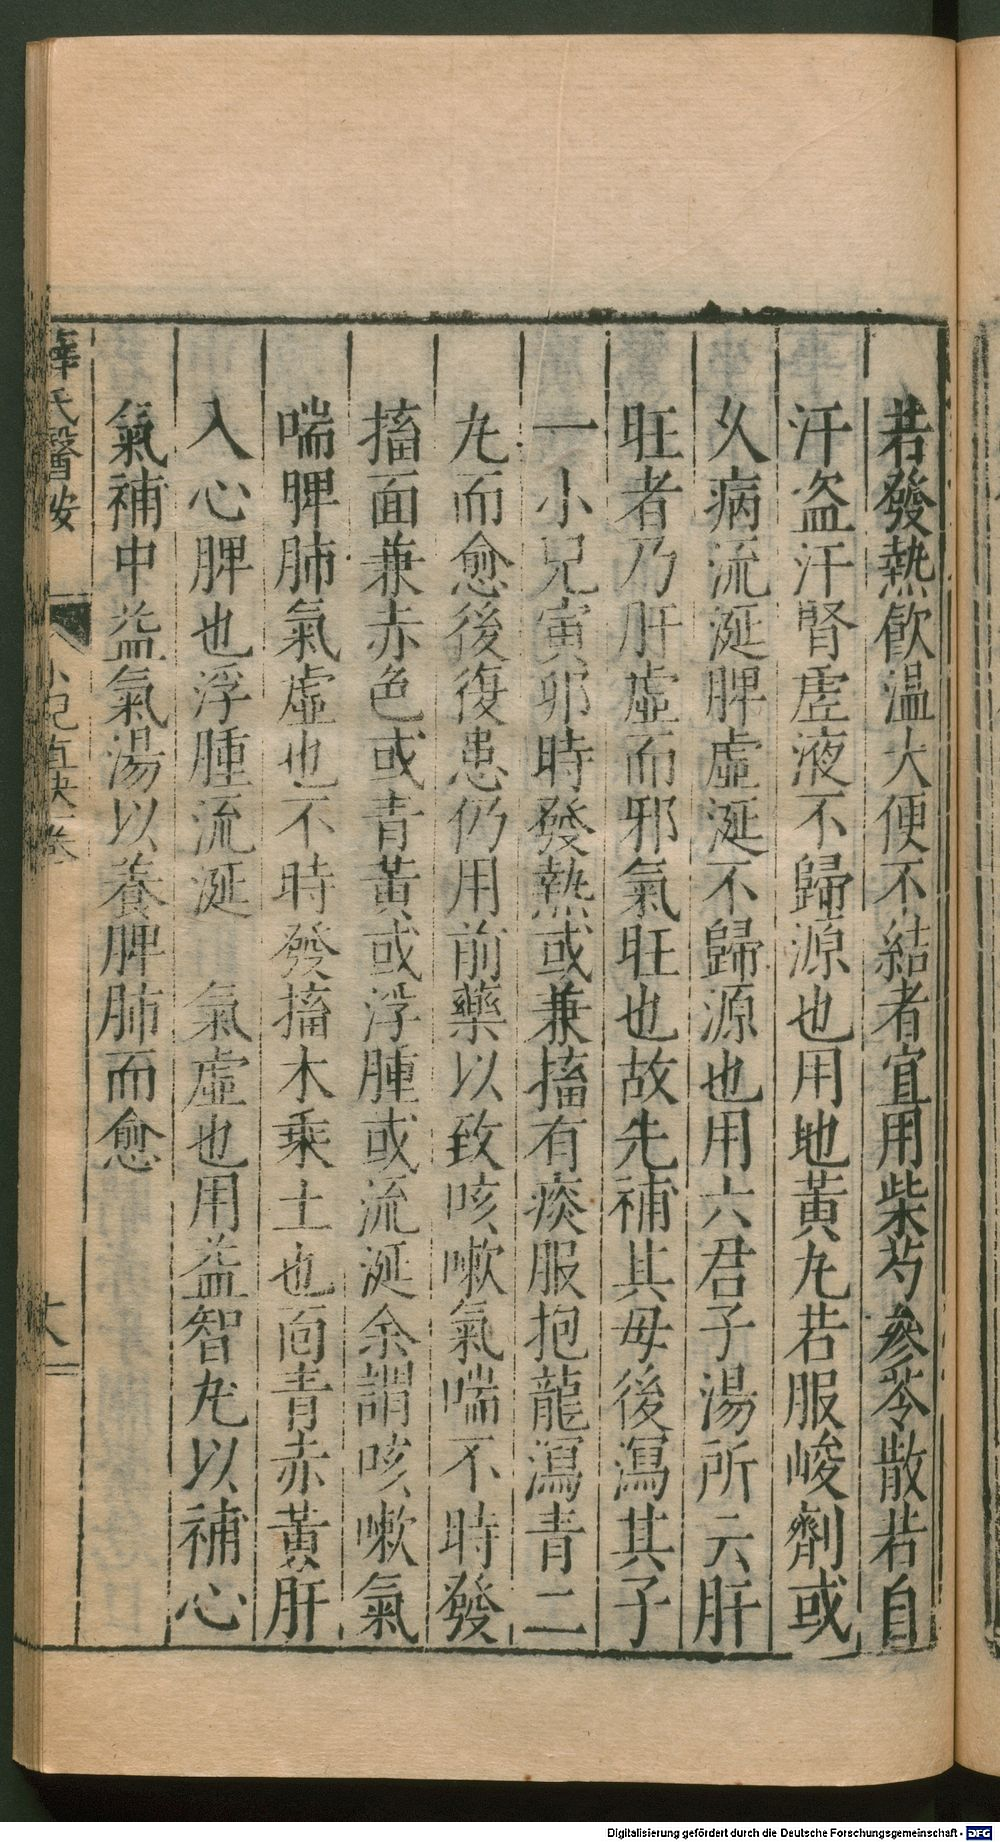 若發熱飲温大便不結者宜用柴芍參苓散若自
汗盗汗腎虚液不歸源也用地黃丸若服峻劑或
久病流涎脾虛涎不歸源也用六君子湯所云肝
旺者乃肝虛而邪氣旺也故先補其母後瀉其子
一小兒寅卯時發熱或兼搐有痰服抱龍瀉青二
丸而愈後復患仍用前藥以致咳嗽氣喘不時發
搐面兼赤色或青黃或浮腫或流涎余謂咳嗽氣
喘脾肺氣虛也不時發搐木乘土也面青赤黃肝
入心脾也浮腫流涎 氣虛也用益智丸以補心
氣補中益氣湯以養脾肺而愈
薛氏醫按 小兒直訣一卷
Digitalisierung gefördert durch die Deutsche Forschungsgemeinschaft - DFG